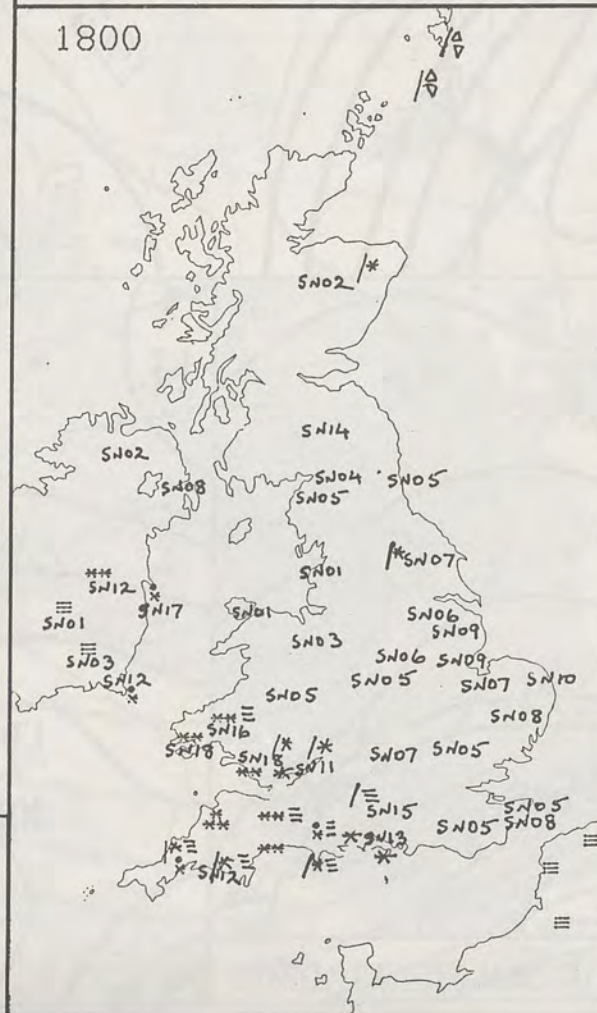 1800
SN02
SN14
SN02
SN04 SN05
SN08 SN05
SN07
SN12 SN01
SN01 SN17 SN01
SN06
SN09
SN03 SN03
SN06 SN09
SN05 SN07 SN10
SN12 SN05
SN08
SN16
SN18 SN18 SN11 SN07 SN05
SN15 SN05
SN13 SN05 SN08
SN12